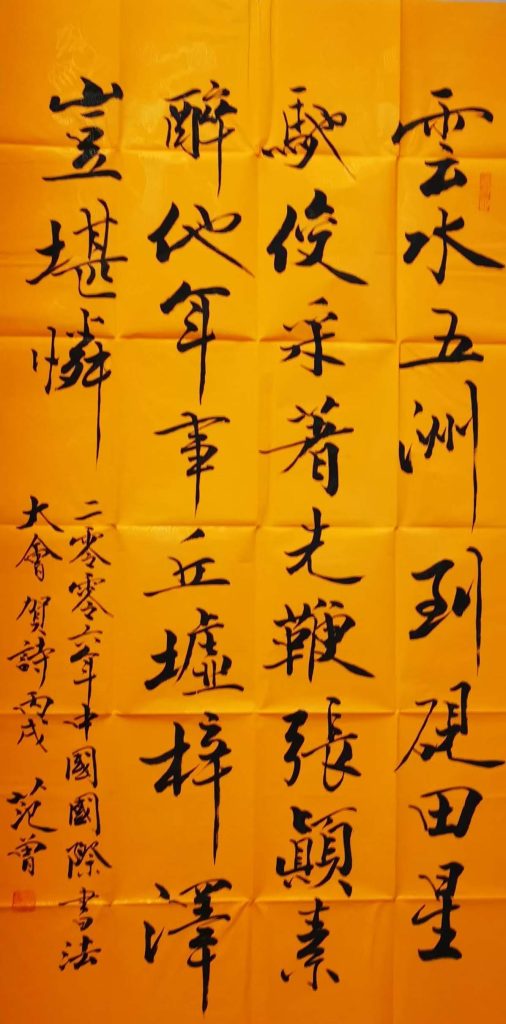 雲水五洲到硯田星
馳俊采著先鞭張顛素
醉他年事丘墟梓澤
豈堪憐
二零零六年中國國際書法
大會賀詩丙戌 范曾